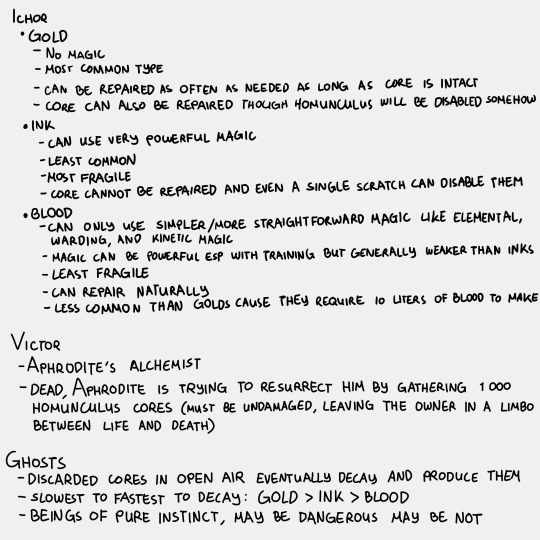 ICHOR
• GOLD
- NO MAGIC
- MOST COMMON TYPE
- CAN BE REPAIRED AS OFTEN AS NEEDED AS LONG AS CORE IS INTACT
- CORE CAN ALSO BE REPAIRED THOUGH HOMUNCULUS WILL BE DISABLED SOMEHOW
• INK
- CAN USE VERY POWERFUL MAGIC
- LEAST COMMON
- MOST FRAGILE
- CORE CANNOT BE REPAIRED AND EVEN A SINGLE SCRATCH CAN DISABLE THEM
• BLOOD
- CAN ONLY USE SIMPLER/MORE STRAIGHTFORWARD MAGIC LIKE ELEMENTAL,
WARDING, AND KINETIC MAGIC
- MAGIC CAN BE POWERFUL ESP WITH TRAINING BUT GENERALLY WEAKER THAN INKS
- LEAST FRAGILE
- CAN REPAIR NATURALLY
- LESS COMMON THAN GOLDS CAUSE THEY REQUIRE 10 LITERS OF BLOOD TO MAKE
VICTOR
- APHRODITE'S ALCHEMIST
- DEAD, APHRODITE IS TRYING TO RESURRECT HIM BY GATHERING 1000
HOMUNCULUS CORES (MUST BE UNDAMAGED, LEAVING THE OWNER IN A LIMBO
BETWEEN LIFE AND DEATH)
GHOSTS
- DISCARDED CORES IN OPEN AIR EVENTUALLY DECAY AND PRODUCE THEM
- SLOWEST TO FASTEST TO DECAY: GOLD > INK > BLOOD
- BEINGS OF PURE INSTINCT, MAY BE DANGEROUS MAY BE NOT